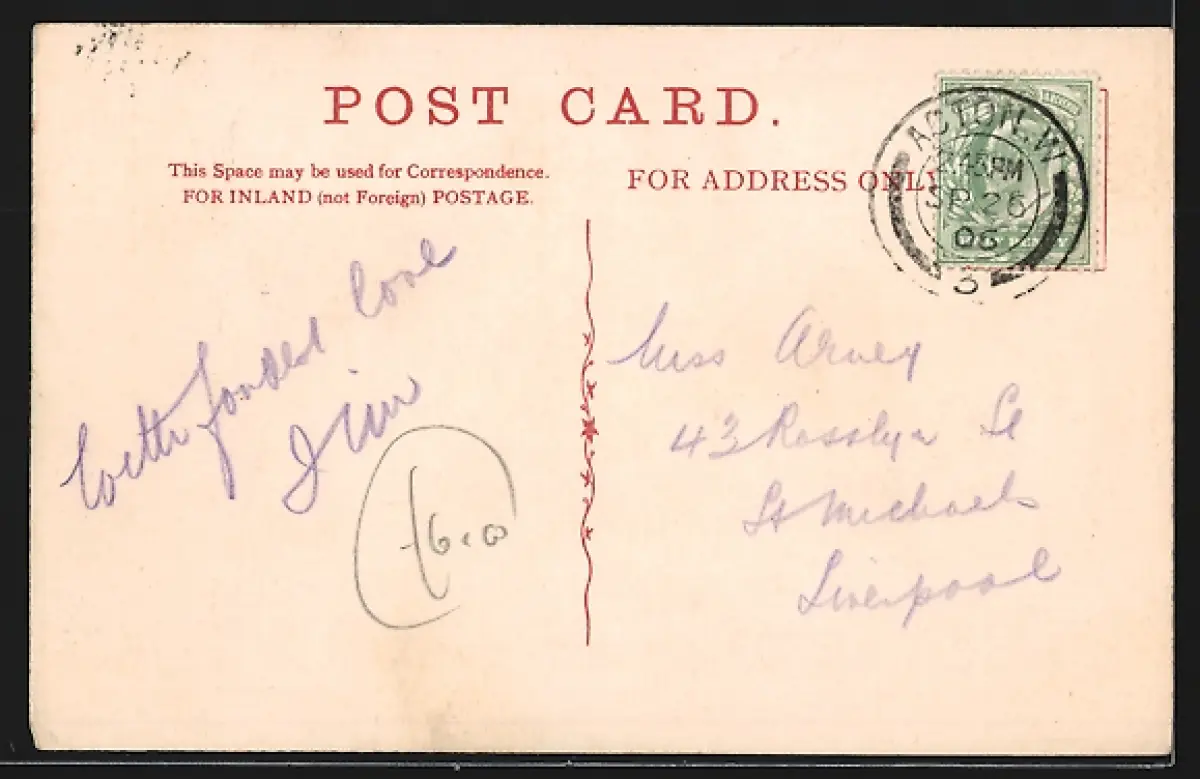 POST CARD.
This Space may be used for Correspondence.
FOR INLAND (not Foreign) POSTAGE.
FOR ADDRESS ONLY
ACTON. W
45 PM
SP 26
06
3
With fondest love
Jim
Miss Arvey
43 Rosslyn St
St Michaels
Liverpool